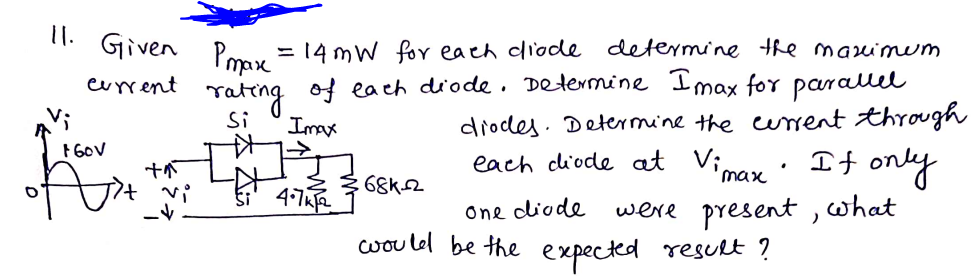 11. Given Pmax = 14mW for each diode determine the maximum
current rating of each diode. Determine Imax for parallel
diodes. Determine the current through
each diode at Vimax. If only
one diode were present, what
would be the expected result?
Vi
160V
0
t
+
Vi
-
Si
Si
Imax
4.7kΩ
68kΩ